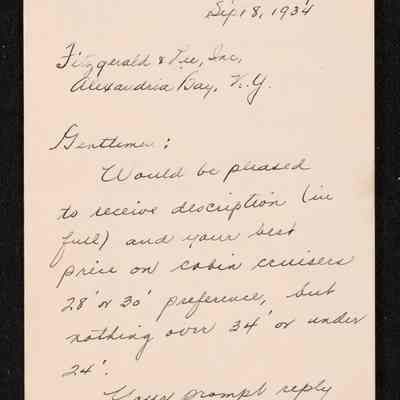 Sep 18, 1934
Fitzgerald & Lee, Inc,
Alexandria Bay, N.Y.
Gentlemen:
Would be pleased
to receive discription (in
full) and your best
price on cabin cruisers
28' or 30' preference, but
nothing over 34' or under
24'.
Your prompt reply